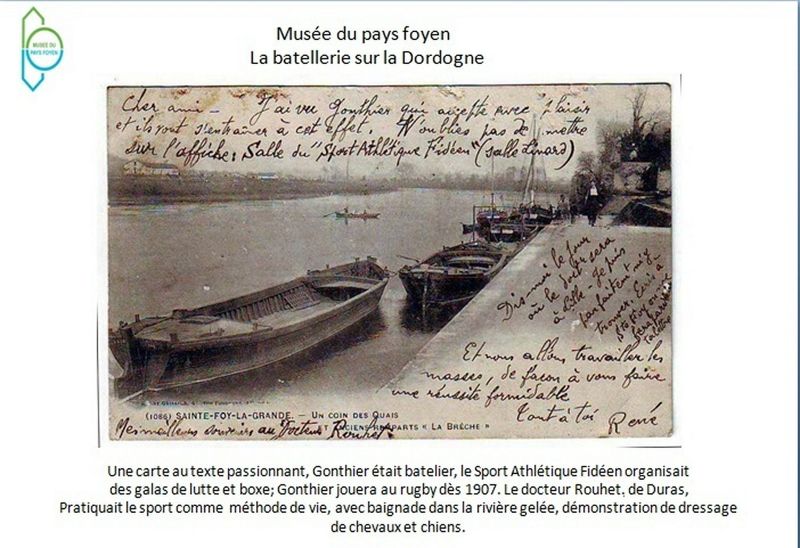 MUSÉE DU
PAYS FOYEN
Musée du pays foyen
La batellerie sur la Dordogne
Cher ami - J'ai vu Gonthier qui accepte avec plaisir
et ils vont s'entraîner à cet effet. N'oublies pas de mettre
sur l'affiche: Salle du "Sport Athlétique Fidéen" (salle Linard)
Dis-moi le jour
où le docteur sera
à Puis
parfaitement m'y
trouver. Ecris à
Et nous allons travailler les
masses, de façon à vous faire
une réussite formidable
Tout à toi René
(1086) SAINTE-FOY-LA-GRANDE. — UN COIN DES QUAIS
ET ANCIENS REMPARTS « LA BRÈCHE »
Mes meilleurs souvenirs au Docteur Rouhet
Une carte au texte passionnant, Gonthier était batelier, le Sport Athlétique Fidéen organisait
des galas de lutte et boxe; Gonthier jouera au rugby dès 1907. Le docteur Rouhet, de Duras,
Pratiquait le sport comme méthode de vie, avec baignade dans la rivière gelée, démonstration de dressage
de chevaux et chiens.